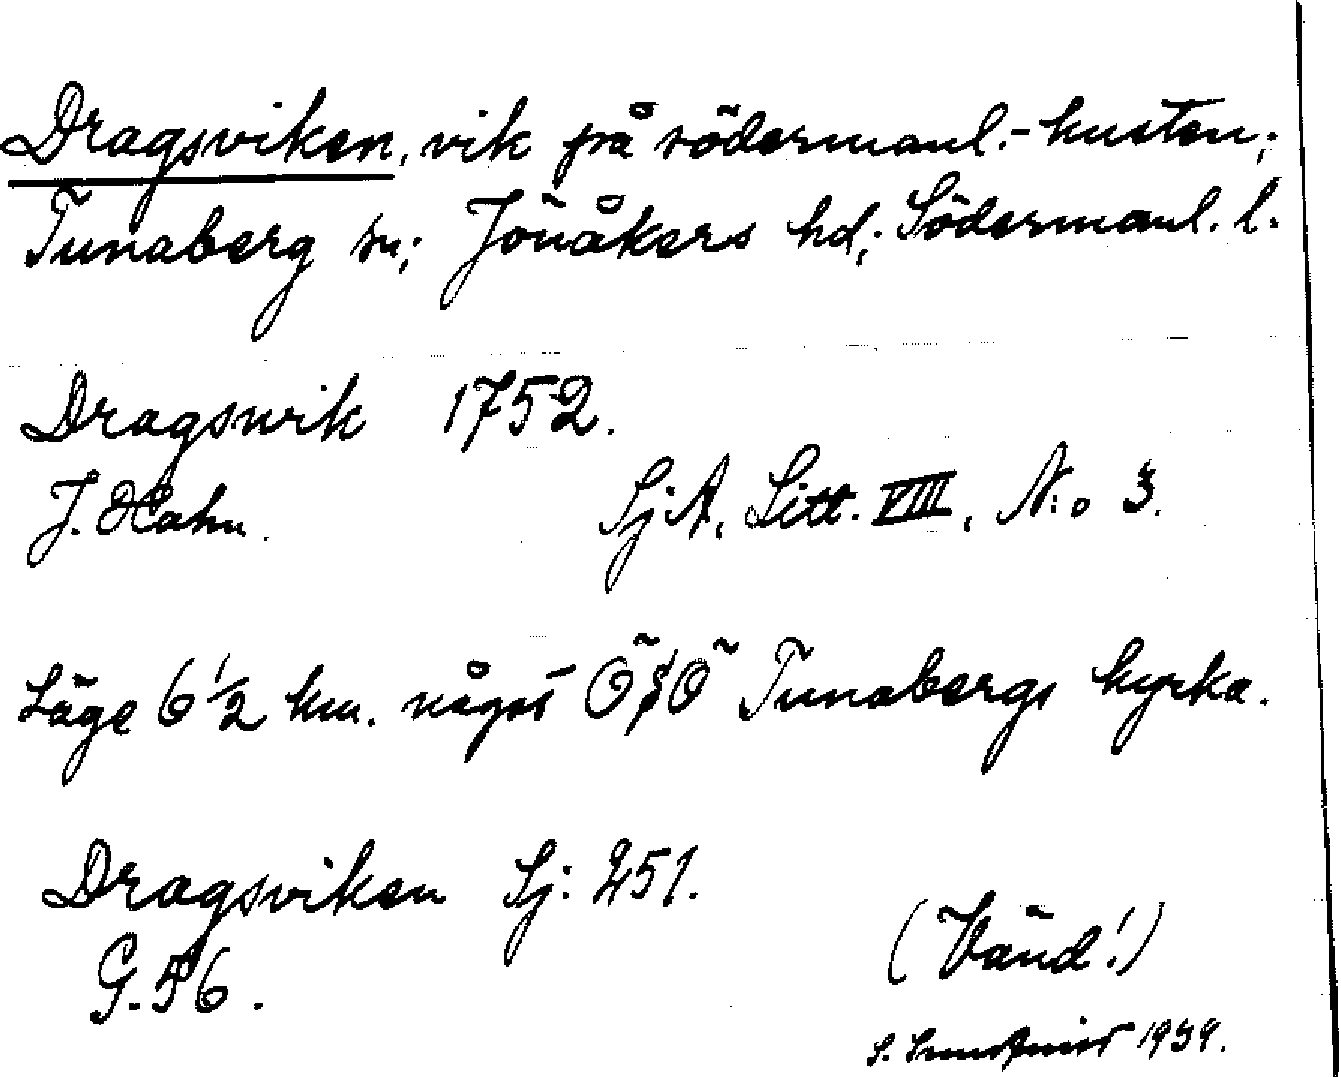 Dragsviken, vik på södermanl.-kusten;
Tunaberg sn; Jönåkers hd; Södermanl. l.
Dragswik 1752.
J. Hahn. SjA, Litt. VIII, N:o 3.
Läge 6 1/2 km. något ÖSÖ Tunabergs kyrka.
Dragsviken Sj: 251.
G. 56.
(Vänd!)
S. 1939.